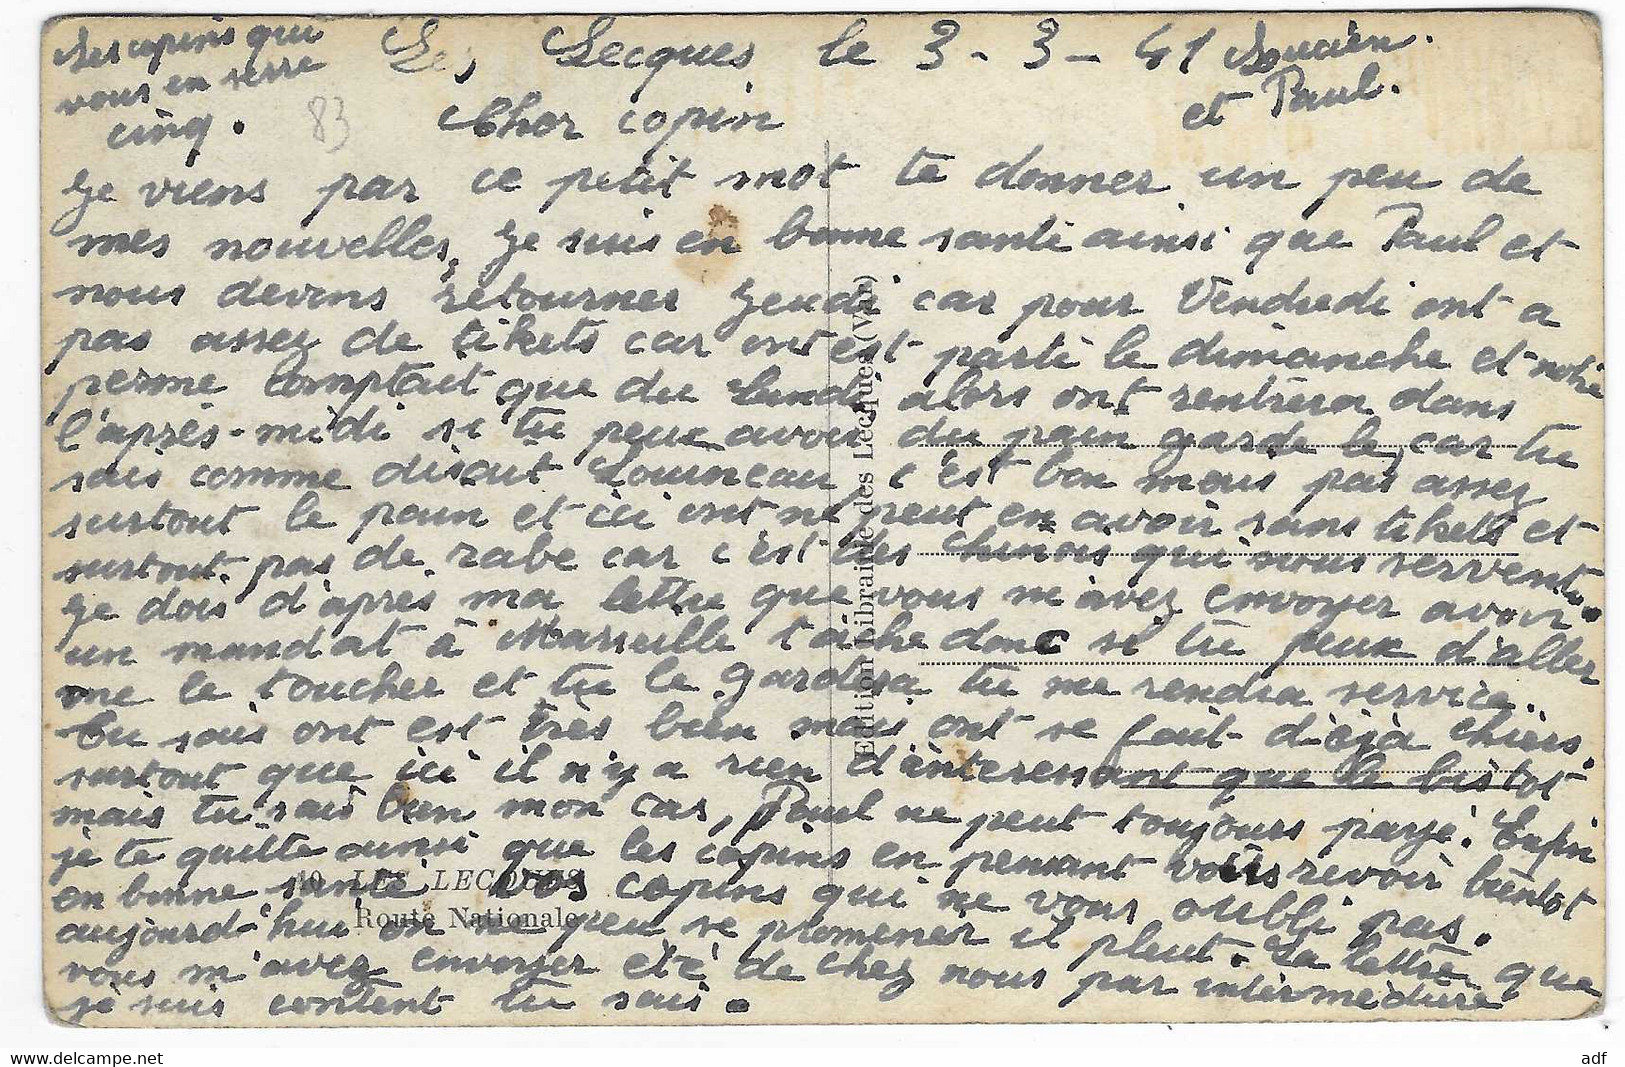 Les copins qui
vous en serre
cinq.
83
Les Lecques le 3-3-41
Lucien.
et Paul.
Cher copin
Je viens par ce petit mot te donner un peu de
mes nouvelles, Je suis en bonne santé ainsi que Paul et
nous devons retourner Jeudi car pour Vendredi ont a
pas assez de tikets car ont est parti le dimanche et notre
perme comptait que du Lundi, alors ont rentrera dans
l'après-midi si tu peux avoir du pain garde le, car tu
sais comme disait Tourneau, c'est bon mais pas assez
surtout le pain et ici ont ne peut en avoir sans tikets et
surtout pas de rabe car c'est des chinois qui nous servent.
Je dois d'après ma lettre que vous m'avez envoyer avoir
un mandat à Marseille tache donc si tu peux d'aller
me le toucher et tu le gardera tu me rendra service.
Tu sais ont est très bien mais ont se fait déjà chier.
surtout que ici il n'y a rien d'interessant que le bistot
mais tu sais bien mon cas, Paul ne peut toujours payé. Enfin
je te quitte ainsi que les copins en pensant vous revoir bientot
en bonne santé vos copins qui ne vous oubli pas.
aujourd'hui on peu se promener il pleut. La lettre que
vous m'avez envoyer été de chez nous par intermédiire
je suis content tu sais.
Edition Librairie des Lecques (Var)
10 LES LECQUES
Route Nationale
adf